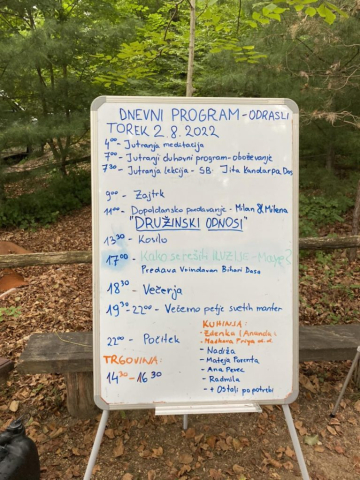 DNEVNI PROGRAM - ODRASLI
TOREK 2.8.2022
4⁰⁰ - Jutranja meditacija
7⁰⁰ - Jutranji duhovni program - oboževanje
7³⁰ - Jutranja lekcija - SB - Jita Kandarpa Das
9⁰⁰ - Zajtrk
11⁰⁰ - Dopoldansko predavanje - Milan & Milena
"DRUŽINSKI ODNOSI"
13³⁰ - Kosilo
17⁰⁰ - Kako se rešiti
Predava Vrindavan Bihari Dasa
18³⁰ - Večerja
19³⁰ - 22⁰⁰ - Večerno petje svetih manter
22⁰⁰ - Počitek
KUHINJA:
- Zdenka (Ananda)
- Madhava Priya d.d.
- Nadrža
- Mateja Parenta
- Ana Perec
- Radmila
- + Ostali po potrebi
TRGOVINA:
14³⁰ - 16³⁰